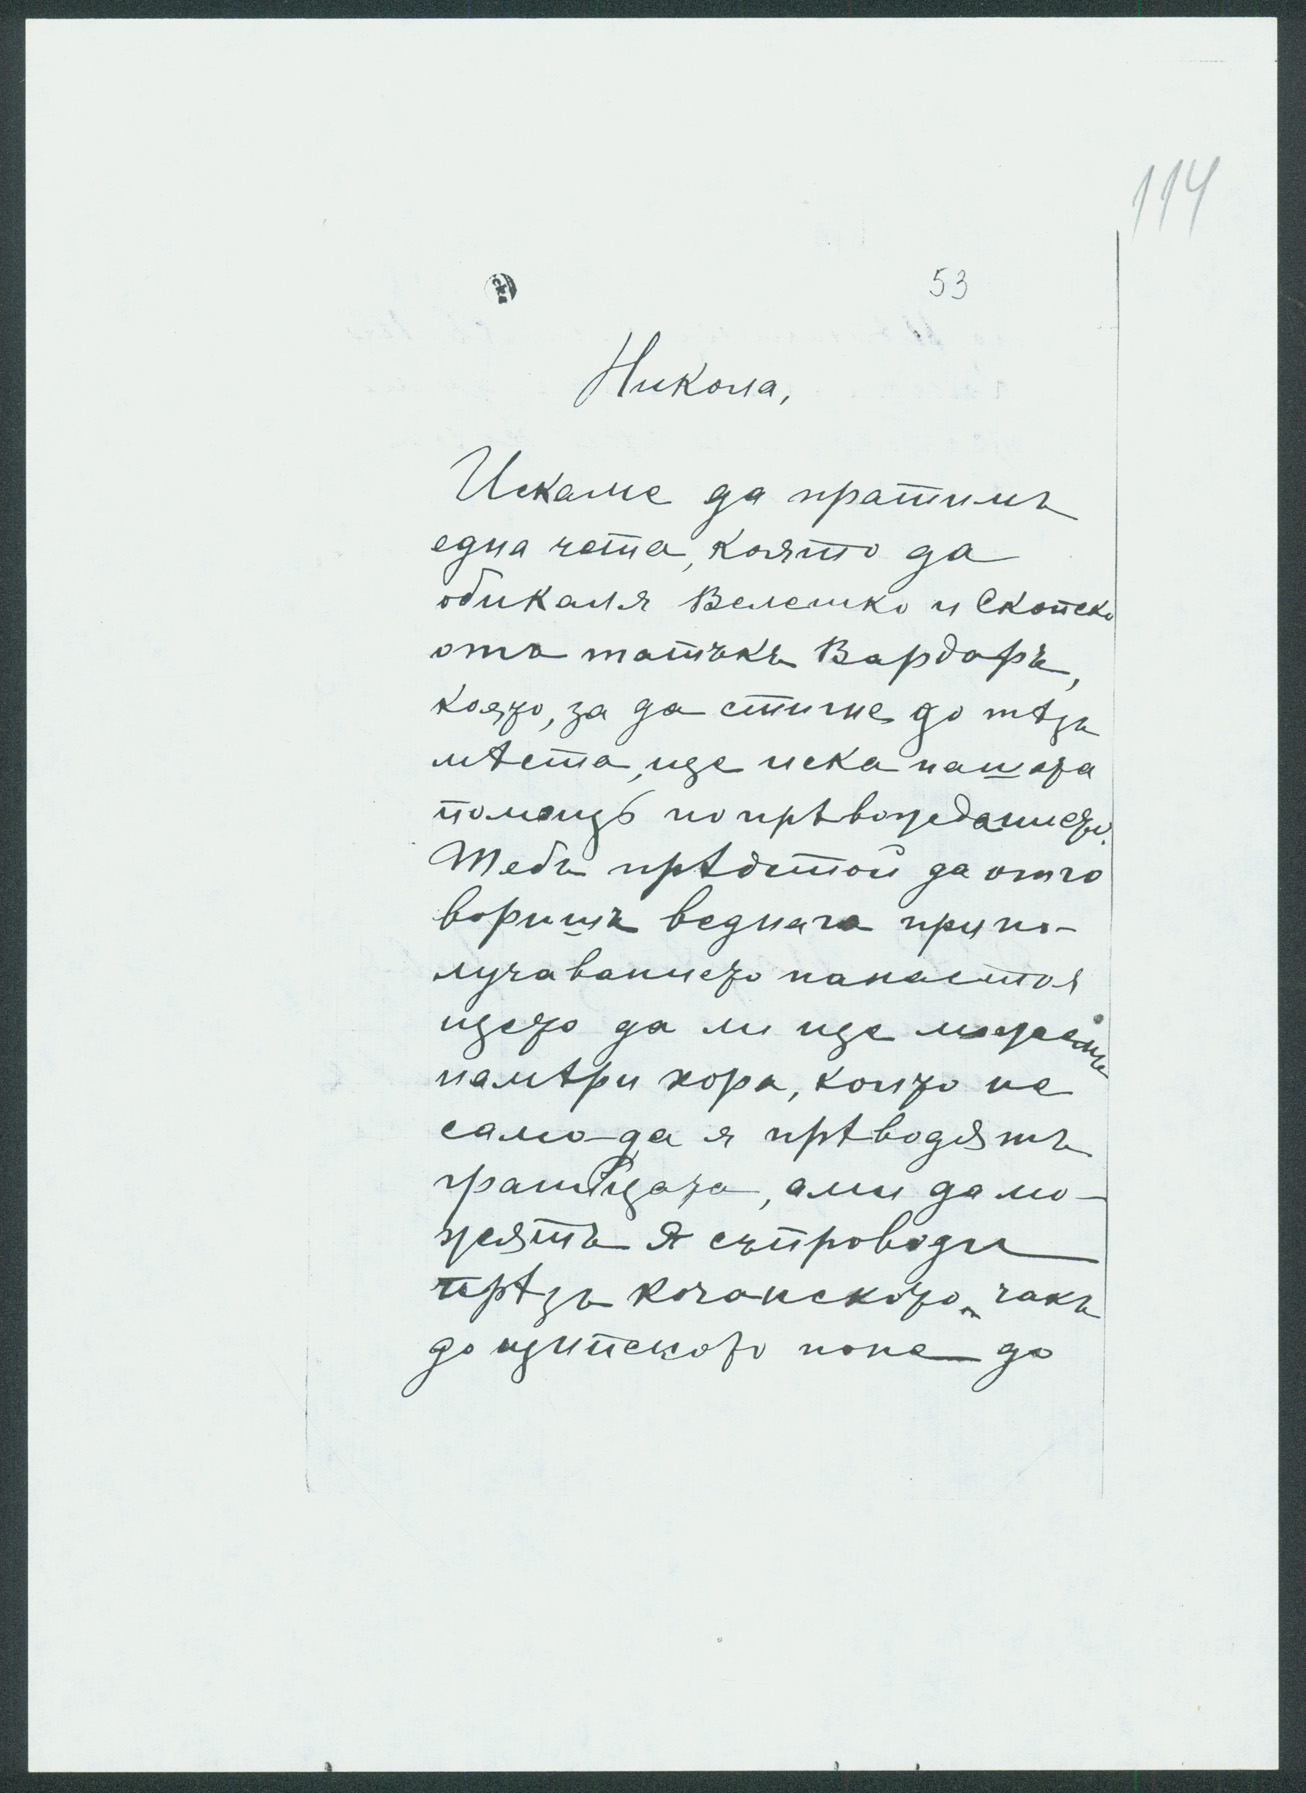 114
53
Никола,
Искаме да пратимъ
една чета, която да
обикаля Велешко и Скопско
отъ татъкъ Вардаръ,
която, за да стигне до тѣзи
мѣста, ще иска нашата
помощь по прѣвожданието.
Тебѣ прѣдстои да отго
воришъ веднага при по-
лучаванието на настоя
щето да ли ще можешъ
намѣри хора, които не
само да я прѣводятъ
границата, ами да мо-
жятъ я съпроводи
прѣзъ кочанското, чакъ
до щипското поне до